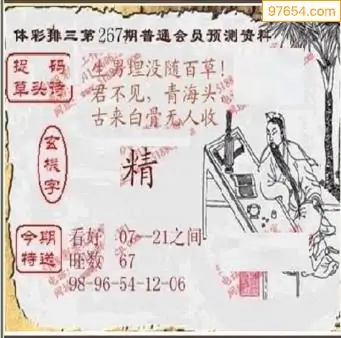 97654.com
体彩排三第267期普通会员预测资料
捉码
草头诗
生男埋没随百草!
君不见,青海头
古来白骨无人收
玄機字
精
今期
特送
看好 07—21之间
旺数 67
98-96-54-12-06